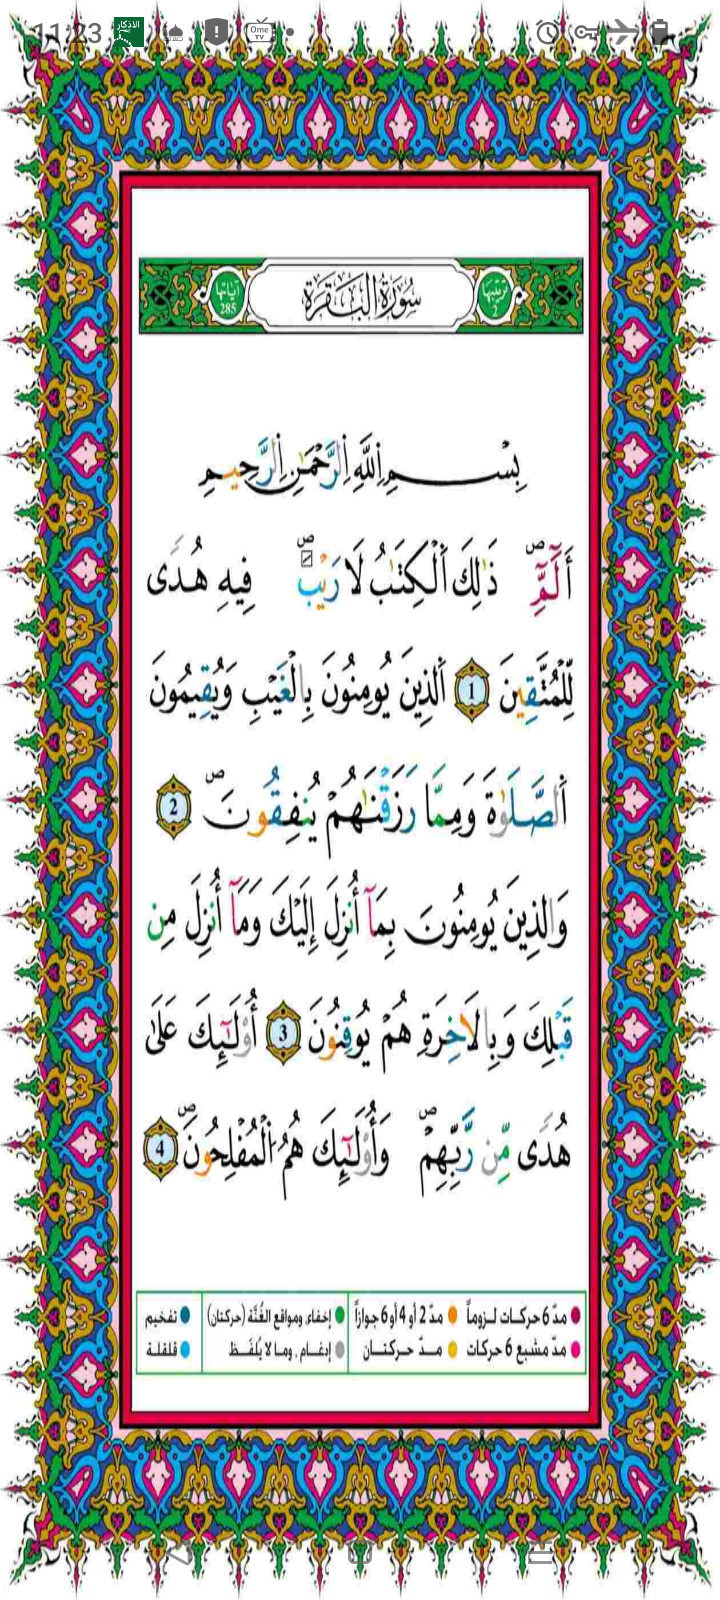 11:23 الاذكار Ome TV
ترتيبها 2 سُورَةُ الْبَقَرَةِ آياتها 285
بِسْمِ اِ۬للَّهِ اِ۬لرَّحْمَٰنِ اِ۬لرَّحِيمِ
أَلَٓمِّٓۖ ذَٰلِكَ اَ۬لْكِتَٰبُ لَا رَيْبَۖ فِيهِ هُدىٗ
لِّلْمُتَّقِينَ 1 اَ۬لذِينَ يُومِنُونَ بِالْغَيْبِ وَيُقِيمُونَ
اَ۬لصَّلَوٰةَ وَمِمَّا رَزَقْنَٰهُمْ يُنفِقُونَۖ 2
وَالذِينَ يُومِنُونَ بِمَآ أُنزِلَ إِلَيْكَ وَمَآ أُنزِلَ مِن
قَبْلِكَ وَبِالَاخِرَةِ هُمْ يُوقِنُونَ 3 أُوْلَٰٓئِكَ عَلَىٰ
هُدىٗ مِّن رَّبِّهِمْۖ وَأُوْلَٰٓئِكَ هُمُ اُ۬لْمُفْلِحُونَۖ 4
مدّ 6 حركات لـزوماً مدّ 2 أو 4 أو 6 جوازاً إخفاء، ومواقع الغُنَّة (حركتان) تفخيم
مدّ مشبع 6 حركات مـدّ حـركتـان إدغـام ، وما لا يُلفَـظ قلقلة